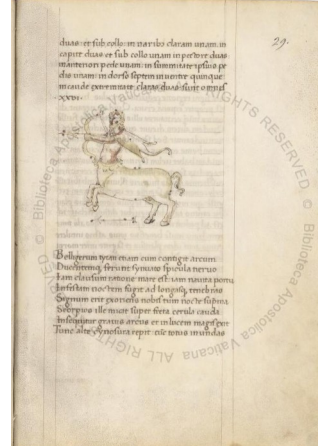 29.
duas. et sub collo. in naribus claram unam. in
capite duas et sub collo unam in pectore duas
in anteriori pede unam. in summitate ipsius pe
dis unam. in dorso septem in uentre quinque
in caude extremitate claras duas. sunt omnes
XXVI.
Belligerum tytan etiam cum contigit arcum
Ducentemque ferunt sinuato spicula neruo
Iam clausum ratione mare est. iam nauita portu
Infestam noctem fugit ad longasq. tenebras
Signum erit exoriens nobis tum nocte suprema
Scorpios ille micat super freta cerula cauda
Insequitur grauis arcus et in lucem magis exit
Tunc alte cynosura repit
© Biblioteca Apostolica Vaticana ALL RIGHTS RESERVED
© Biblioteca Apostolica Vaticana ALL RIGHTS RESERVED